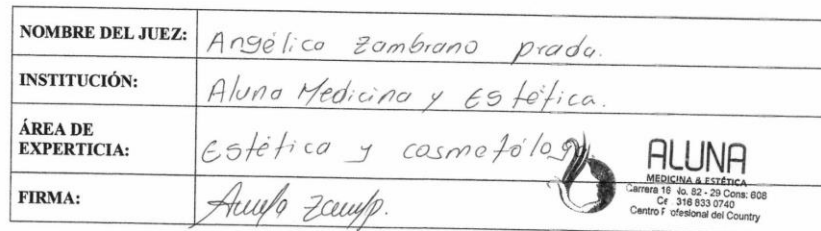 NOMBRE DEL JUEZ: Angélica Zambrano prada.
INSTITUCIÓN: Aluna Medicina y Estética.
ÁREA DE
EXPERTICIA: Estética y cosmetóloga.
ALUNA
MEDICINA & ESTÉTICA
Carrera 16 No. 82 - 29 Cons: 608
316 833 0740
Centro Profesional del Country
FIRMA: